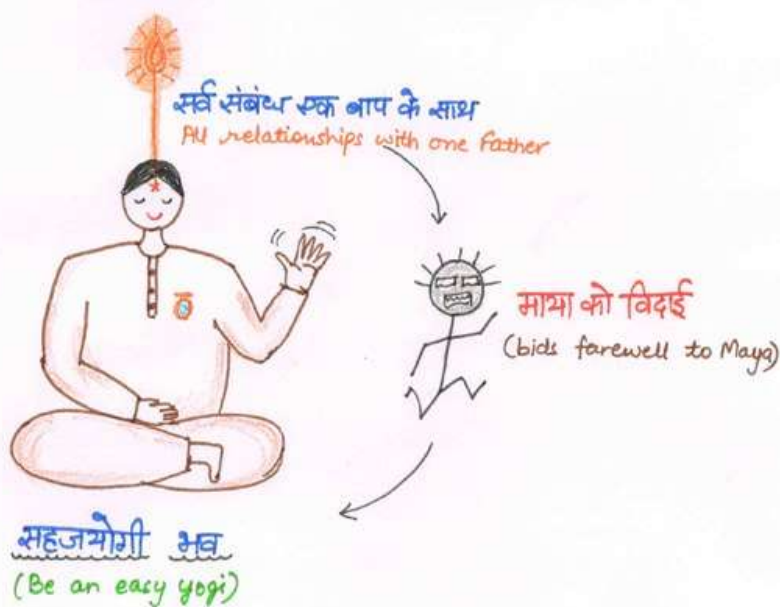 सर्व संबंध एक बाप के साथ
All relationships with one Father
माया को विदाई
(bids farewell to Maya)
सहजयोगी भव
(Be an easy yogi)